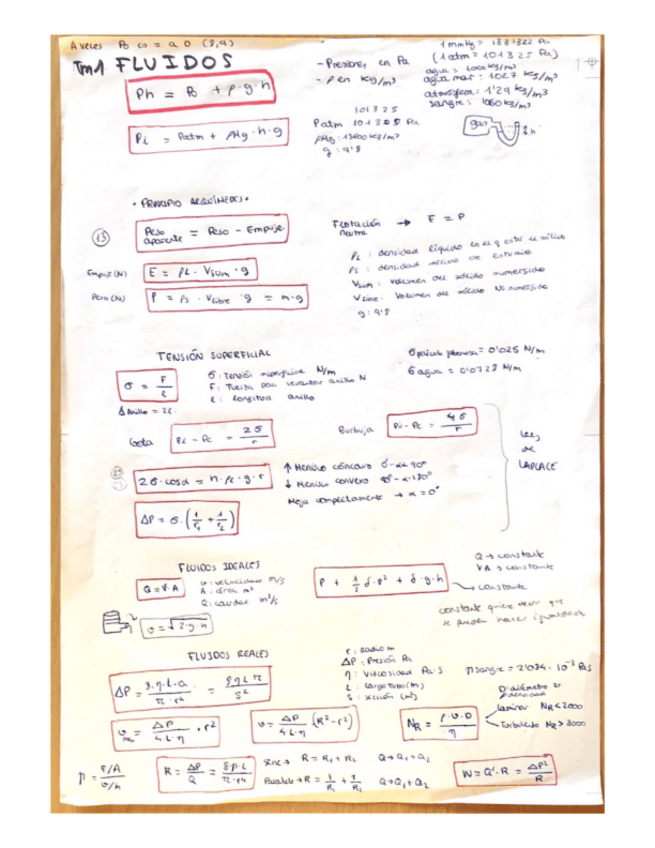 A veces P0 = a 0 (8,9)
Tm1 FLUIDOS
Ph = P0 + ρ·g·h
Pi = Patm + ρHg·h·g
- Presiones en Pa
- ρ en kg/m³
101325
Patm 101325 Pa
ρHg: 13600 kg/m³
g: 9'8
(1 atm = 101325 Pa)
agua: 1000 kg/m³
agua mar: 1027 kg/m³
atmosfera: 1'29 kg/m³
sangre: 1060 kg/m³
gas h
• PRINCIPIO ARQUÍMEDES •
13
Peso aparente = Peso - Empuje
Empuje (N) E = ρL · Vsum · g
Peso (N) P = ρs · Vlibre · g = m·g
Flotación neutra → E = P
ρL: densidad líquido en el q está el sólido
ρs: densidad sólido de estudio
Vsum: volumen del sólido sumergido
Vlibre: Volumen del sólido no sumergido
g: 9'8
TENSIÓN SUPERFICIAL
σ = F/l
σ: Tensión superficial N/m
F: Fuerza para levantar anillo N
l: longitud anillo
= 0'025 N/m
σ agua = 0'0728 N/m
Anillo = 2L
Gota Pi - Pe = 2σ/r
Burbuja Pi - Pe = 4σ/r
Ley de LAPLACE
2σ·cosα = h·ρL·g·r
↑ Menisco cóncavo 0° < α < 90°
↓ Menisco convexo 90° - α - 180°
Moja completamente → α = 0°
ΔP = σ·(1/r1 + 1/r2)
FLUIDOS IDEALES
Q = V·A
v: velocidad m/s
A: área m²
Q: caudal m³/s
P + 1/2 δ·v² + δ·g·h → constante
Q → constante
V·A → constante
constante quiere decir que se pueden hacer igualdades
v = √2·g·h
FLUIDOS REALES
r: Radio m
ΔP: Presión Pa
η: Viscosidad Pa·s
L: Largo tubo (m)
S: sección (m²)
η sangre = 2'084 · 10⁻³ Pa·s
ΔP = 8·η·L·Q / π·r⁴ = 8ηLπ / S²
D: diámetro
ρ: densidad
v = ΔP / 4·L·η · r²
v = ΔP / 4·L·η (R² - r²)
NR = ρ·v·D / η
laminar NR < 2000
Turbulento NR > 3000
η = F/A / v/h
R = ΔP/Q = 8·η·L / π·r⁴
Serie → R = R1 + R2 Q → Q1 = Q2
Paralelo → R = 1/R1 + 1/R2 Q → Q1 + Q2
W = Q²·R = ΔP²/R